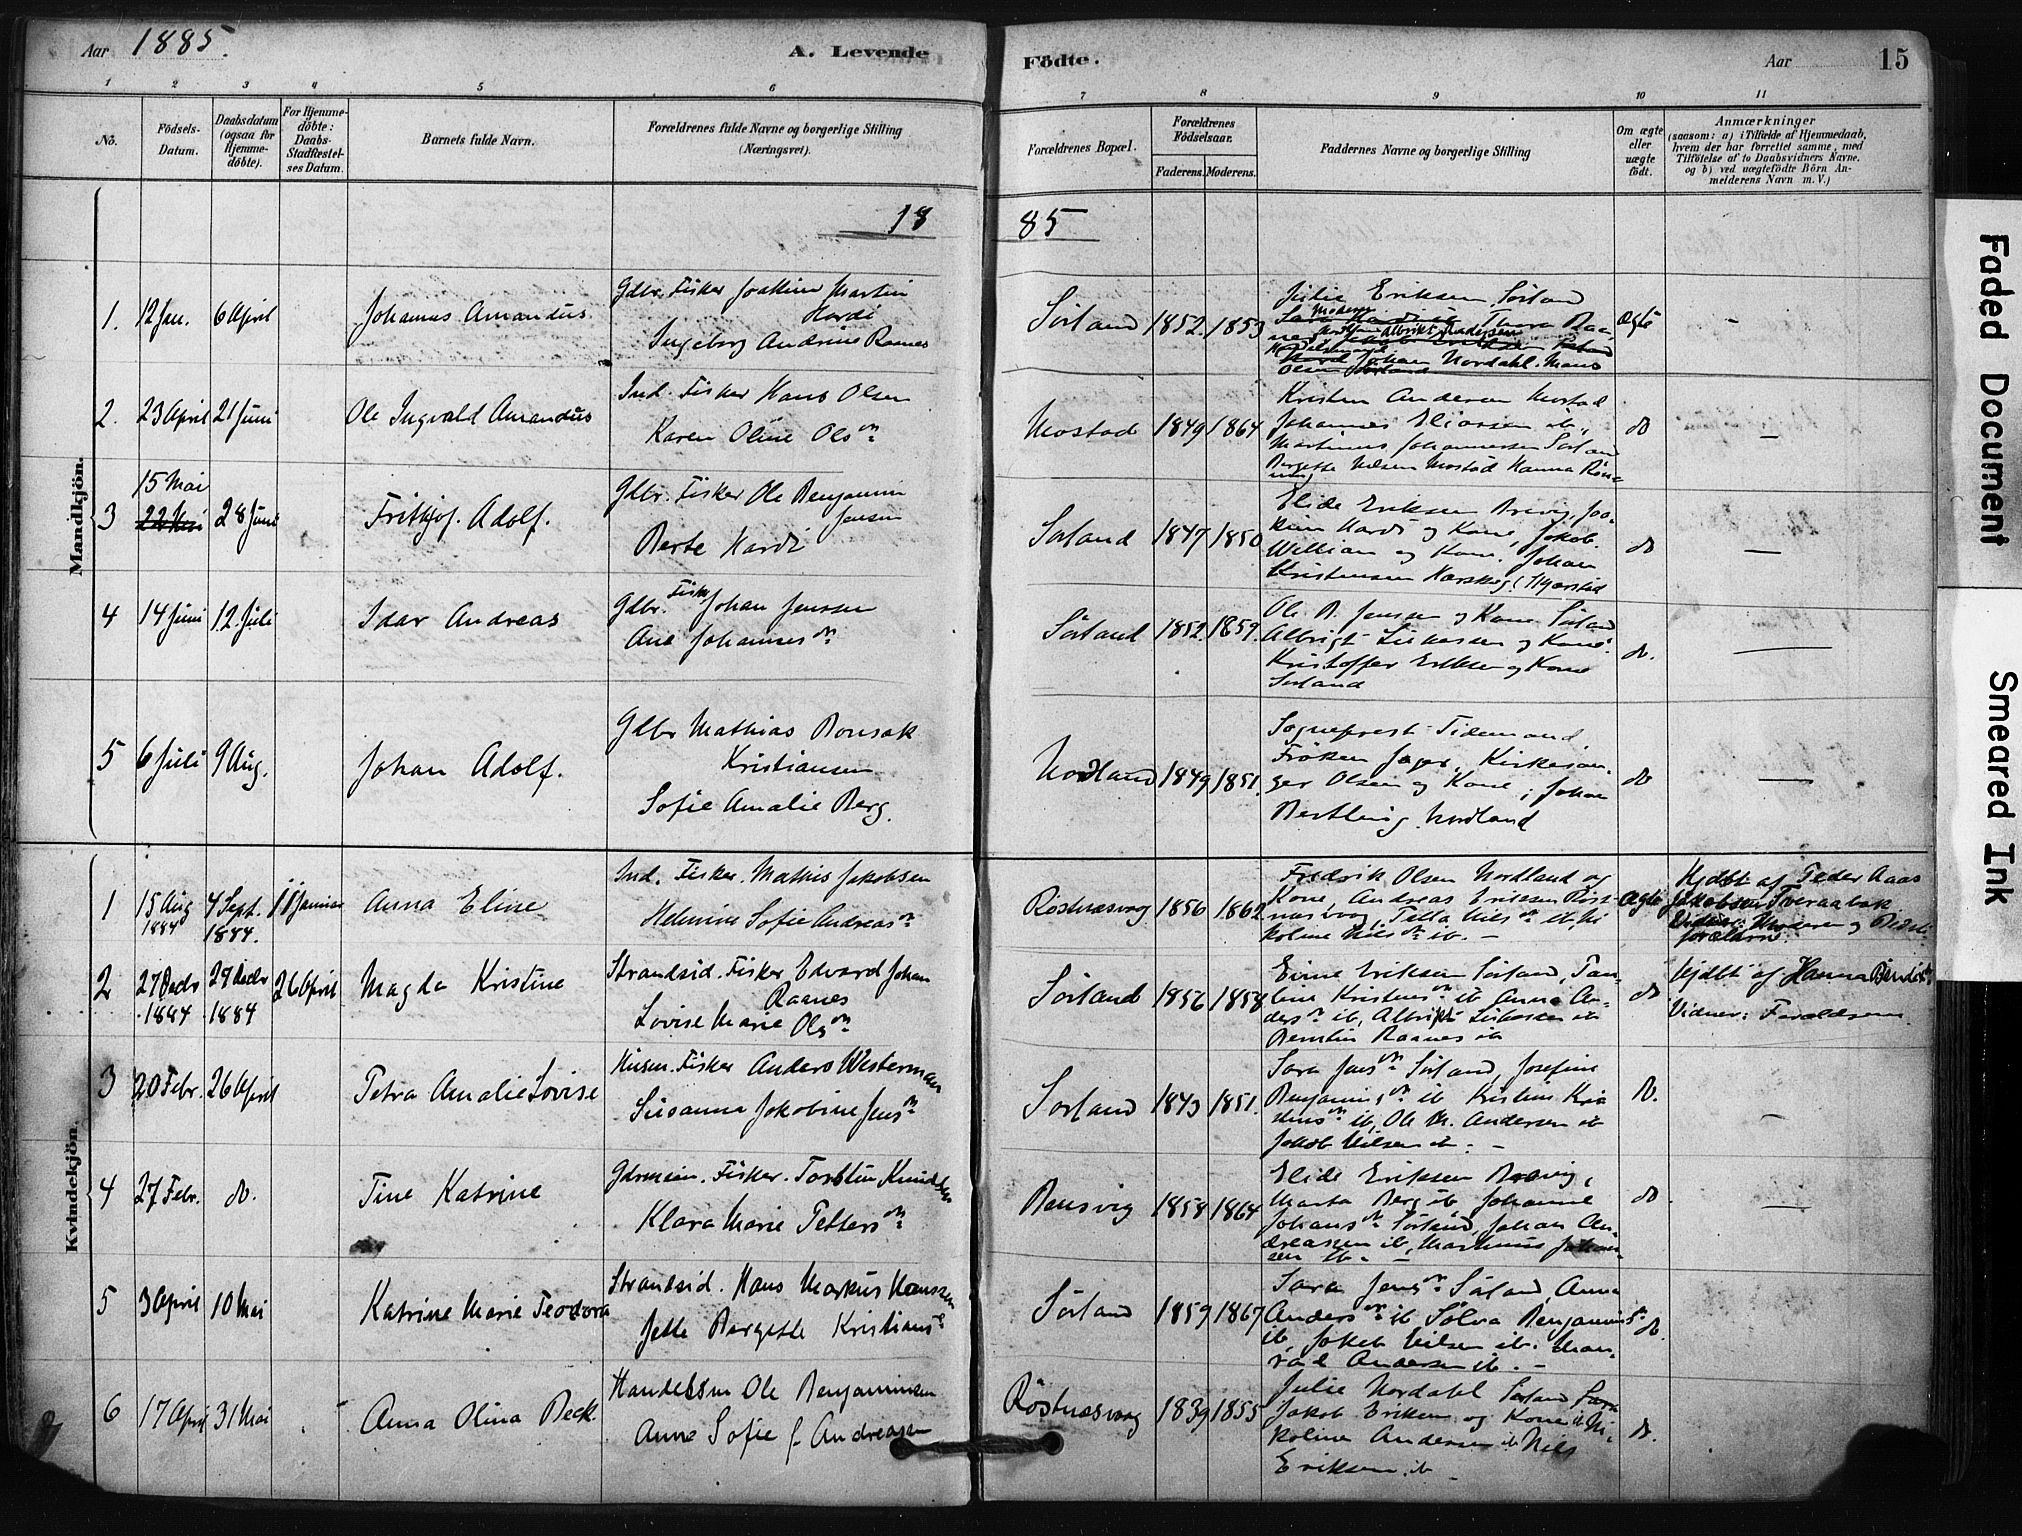 Aar 1885.
A. Levende
Födte.
Aar
15
1 2 3 4 5 6 7 8 9 10 11
No.
Födsels-
Datum.
Daabsdatum
(ogsaa for
Hjemme-
döbte).
For Hjemme-
döbte:
Daabs-
Stadfæstel-
ses Datum.
Barnets fulde Navn.
Forældrenes fulde Navne og borgerlige Stilling
(Næringsvei).
Forældrenes Bopæl.
Forældrenes
Födselsaar.
Faderens. Moderens.
Faddernes Navne og borgerlige Stilling
Om ægte
eller
uægte
födt.
Anmærkninger
(saasom: a) i Tilfælde af Hjemmedaab,
hvem der har forrettet samme, med
Tilföielse af to Daabsvidners Navne.
og b) ved uægtefödte Börn An-
melderens Navn m. V.)
18
85
Mandkjön.
1. 12 Jan. 6 April
Johannes Amandus
Gdbr. Fisker Joakim Martin
Hardi
Ingeborg Andrine Raanes
Sörland 1852 1853
Julie Eriksen Sörland
Thora Raa-
Johan Nordahl.
Olsen Sörland
Ægte -
2. 23 April 21 Juni
Ole Ingvald Amandus
Ind. Fisker Hans Olsen
Karen Oline Olsdn
Mostad 1849 1864
Kristen Andersen Mostad
Johannes Eliassen ib.,
Martinus Johannessen Sörland
Bergitte Nilsen Mostad Hanna Rön-
ning
do -
3 15 Mai
22 Mai 28 Juni
Frithjof. Adolf.
Gdbr. Fisker Ole Benjamin
Jensen
Berte Hardi
Sörland 1847 1850
Elide Eriksen Brevig, Joa-
kim Hardi og Kone, Jakob
William og Kone, Johan
Kristensen
do -
4 14 Juni 12 Juli
Idar Andreas
Gdbr. Fisker Johan Jenssen
Ane Johannesdn
Sörland 1852 1859.
Ole B. Jensen og Kone Sörland
Albrigt Lukassen og Kone.
Kristoffer Eriksen og Kone
Sörland
do. -
5 6 Juli 9 Aug.
Johan Adolf.
Gdbr Mathias Bonsak
Kristiansen
Sofie Amalie Berg.
Nordland 1849 1851.
Sogneprest Tidemand,
Fröken Jager, Kirkesan-
ger Olsen og Kone; Johan
Berthling Nordland
do -
Kvindekjön.
1 15 Aug
1884 4 Sept.
1884. 11 Januar
Anna Eline
Ind. Fisker. Mathis Jakobsen
Helmine Sofie Andreasdn
Röstnæsvaag 1856 1862
Fredrik Olsen Nordland og
Kone, Andreas Eriksen Röst-
næsvaag, Petta Nilsdn ib. Ni-
koline Nilsdn ib. -
Ægte
Hjdbt af Peder Aaas
Jakobsen Tveraabak
Vidner: Moderen og Bedste-
forældrene.
2 27 Decbr
1884 29 Decbr
1884 26 April
Magda Kristine
Strandsid. Fisker Edvard Johan
Raanes
Lovise Marie Olsdn
Sörland 1856 1858
Eline Eriksen Sörland, Pau-
line Kristensdn ib. Anna An-
dersdn ib, Albrigt Lukassen ib
Raanes ib
do
Hjdbt af Hanna Bendiks
Vidner: Forældrene.
3 20 Febr. 26 April
Petra Amalie Lovise
Husm. Fisker Anders Westerman
Susanna Jakobine Jensdn
Sörland 1843 1851.
Sara Jensdn Sörland, Josefine
Benjaminsdn ib Kristine Kris-
tensdn ib, Ole M. Andersen ib
Jakob Nilsen ib. -
do. -
4 27 Febr. do.
Tine Katrine
Gdrmein. Fisker. Torstein Knudsen
Klara Marie Pettersdn
Rensvig 1858 1864
Elide Eriksen Brevig,
Marta Berg ib Johanne
Johansdn Sörland, Johan An-
dreassen ib, Martinus Johan-
sen ib -
do -
5 3 April 10 Mai
Katrine Marie Teodora
Strandsid. Hans Markus Hanssen
Jette Bergitte Kristiansdn
Sörland 1859 1867
Sara Jensdn Sörland, Anna
Andersdn ib Sölva Benjaminsdn
ib, Jakob Nilsen ib. Kon-
rad Andersen ib. -
do.
6 17 April 31 Mai
Anna Olina Beck.
Handelsm Ole Benjaminsen
Anne Sofie f. Andreasen
Röstnæsvaag 1839 1855
Julie Nordahl Sörland
Jakob Eriksen og Kone ib Ni-
koline Andersen ib Nils
Eriksen ib -
do.
Faded Document
Smeared Ink